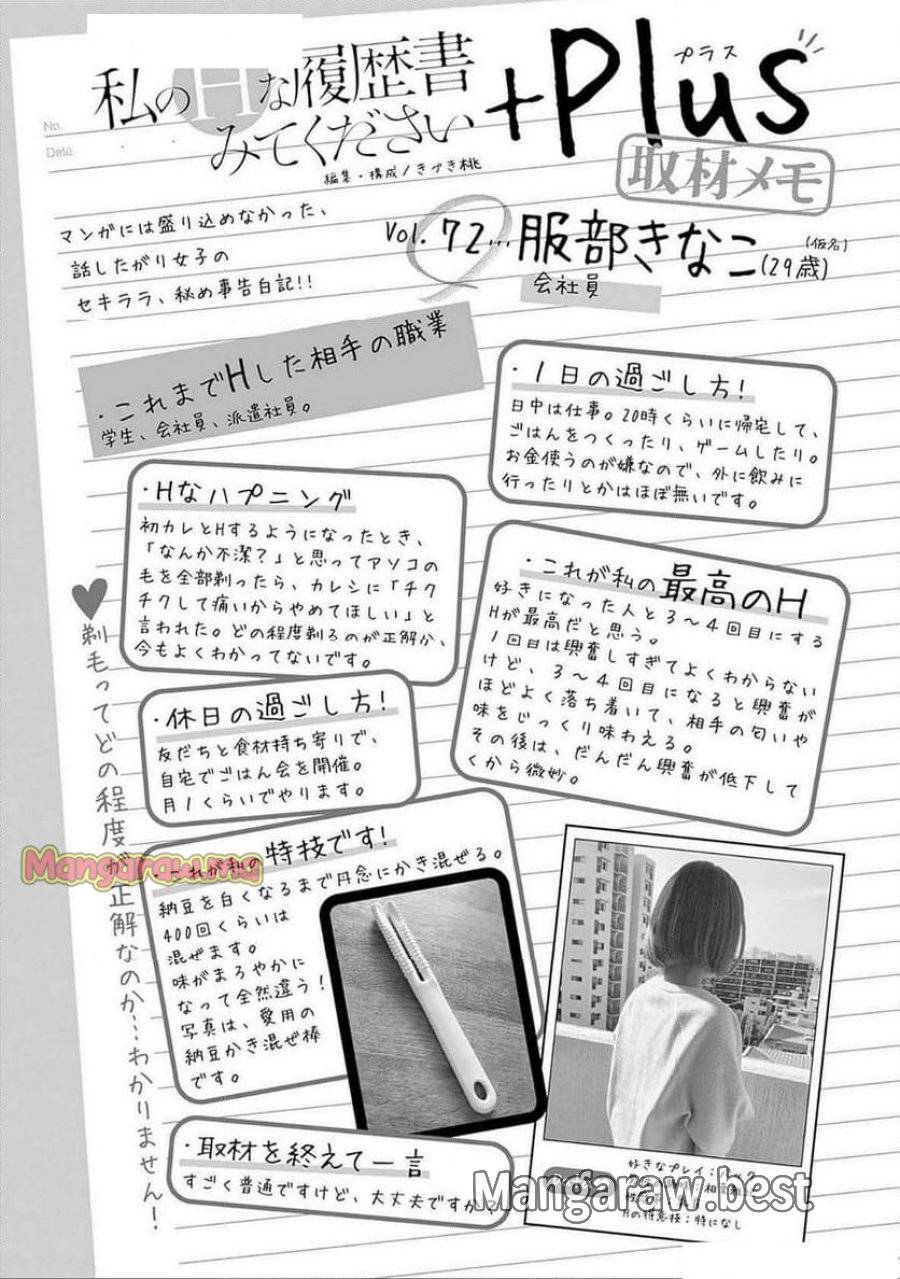 No.
Date
私のHな履歴書
みてください
+Plus
プラス
取材メモ
編集・構成/きづき桃
マンガには盛り込めなかった、
話したがり女子の
セキララ、秘め事告白記!!
Vol.72...服部きなこ(29歳)
(仮名)
会社員
・これまでHした相手の職業
学生、会社員、派遣社員。
・1日の過ごし方!
日中は仕事。20時くらいに帰宅して、
ごはんをつくったり、ゲームしたり。
お金使うのが嫌なので、外に飲みに
行ったりとかはほぼ無いです。
・Hなハプニング
初カレとHするようになったとき、
「なんか不潔?」と思ってアソコの
毛を全部剃ったら、カレシに「チク
チクして痛いからやめてほしい」と
言われた。どの程度剃るのが正解か、
今もよくわかってないです。
・これが私の最高のH
好きになった人と3~4回目にする
Hが最高だと思う。
1回目は興奮しすぎてよくわからない
けど、3~4回目になると興奮が
ほどよく落ち着いて、相手の匂いや
味をじっくり味わえる。
その後は、だんだん興奮が低下して
くから微妙。
♥剃毛ってどの程度が正解なのか…わかりません!
・休日の過ごし方!
友だちと食材持ち寄りで、
自宅でごはん会を開催。
月1くらいでやります。
・これが私の特技です!
納豆を白くなるまで丹念にかき混ぜる。
400回くらいは
混ぜます。
味がまろやかに
なって全然違う!
写真は、愛用の
納豆かき混ぜ棒
です。
・取材を終えて一言
すごく普通ですけど、大丈夫ですか
好きなプレイ:バック
Hの得意技:特になし
Mangaraw.me
Mangaraw.best